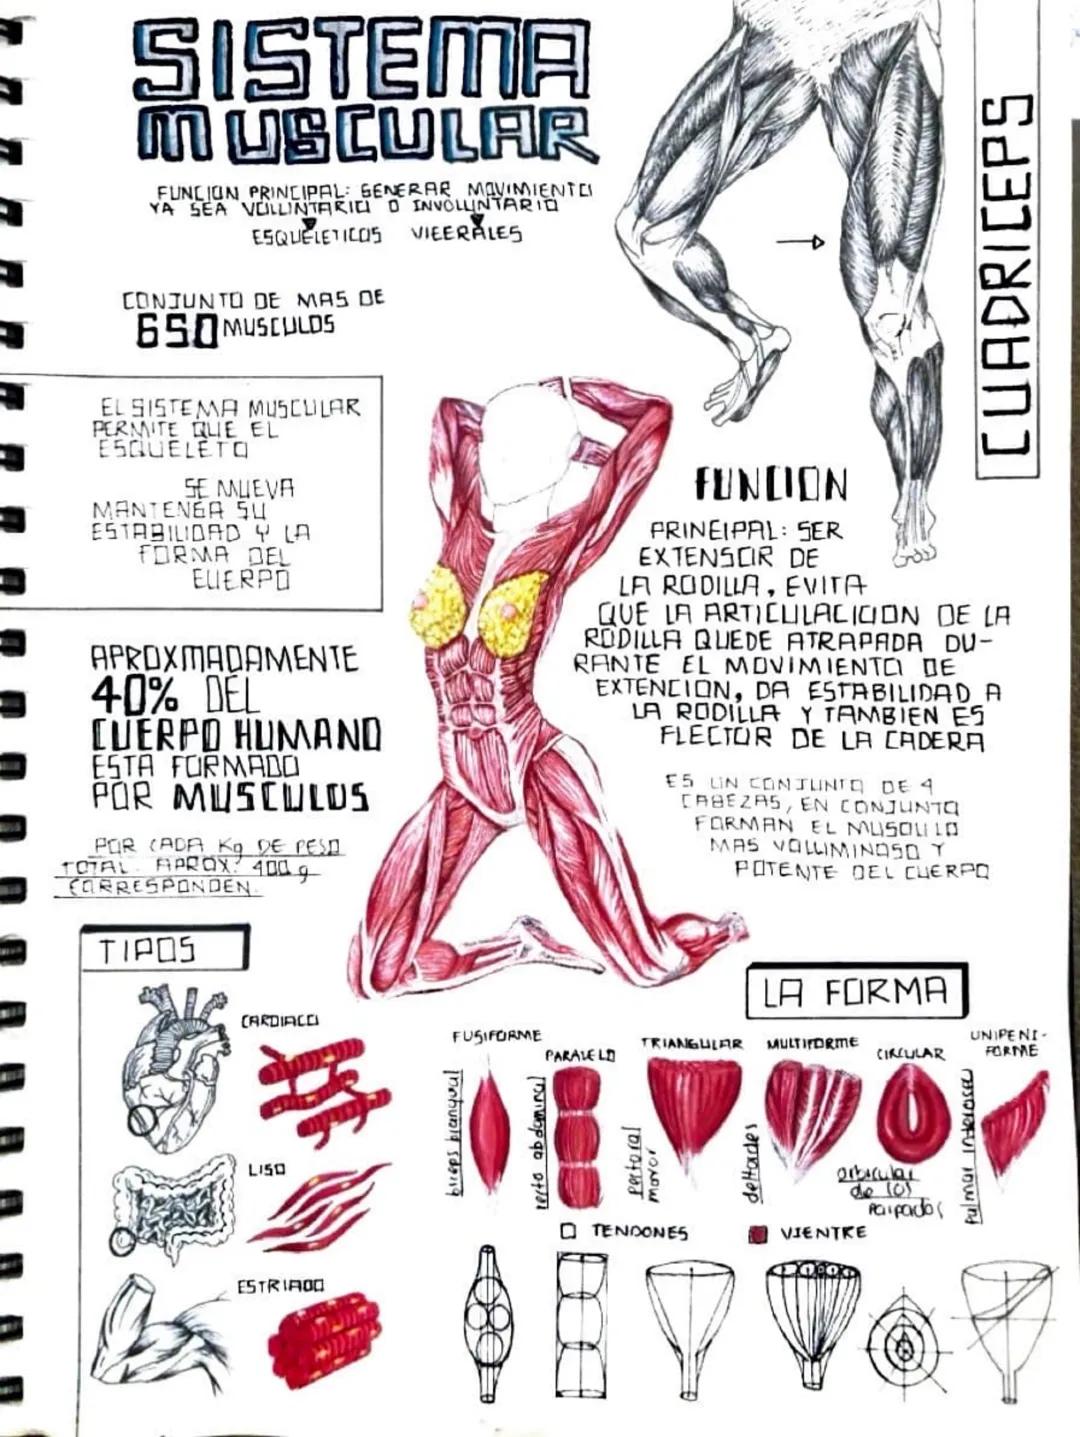 SISTEMA
MUSCULAR
FUNCION PRINCIPAL: GENERAR MOVIMIENTO
YA SEA VOLUNTARIO O INVOLUNTARIO
ESQUELETICOS VICERALES
CONJUNTO DE MAS DE
650 MUSCULOS
EL SISTEMA MUSCULAR
PERMITE QUE EL
ESQUELETO
SE MUEVA
MANTENGA SU
ESTABILIDAD Y LA
FORMA DEL
CUERPO
APROXMADAMENTE
40% DEL
CUERPO HUMANO
ESTA FORMADO
POR MUSCULOS
POR CADA Kg DE PESO
TOTAL APROX: 400 g
CORRESPONDEN.
CUADRICEPS
FUNCION
PRINCIPAL: SER
EXTENSOR DE
LA RODILLA, EVITA
QUE LA ARTICULACICION DE LA
RODILLA QUEDE ATRAPADA DU-
RANTE EL MOVIMIENTO DE
EXTENCION, DA ESTABILIDAD A
LA RODILLA Y TAMBIEN ES
FLECTOR DE LA CADERA
ES UN CONJUNTO DE 4
CABEZAS, EN CONJUNTO
FORMAN EL MUSCULO
MAS VOLUMINOSO Y
POTENTE DEL CUERPO
TIPOS
CARDIACO
LISO
ESTRIADO
LA FORMA
FUSIFORME
biceps branquial
PARALELO
recto abdominal
TRIANGULAR
pectoral
mayor
MULTIFORME
deltoides
CIRCULAR
orbicular
de los
parpados
UNIPENI-
FORME
Palmar interosea
TENDONES
VIENTRE